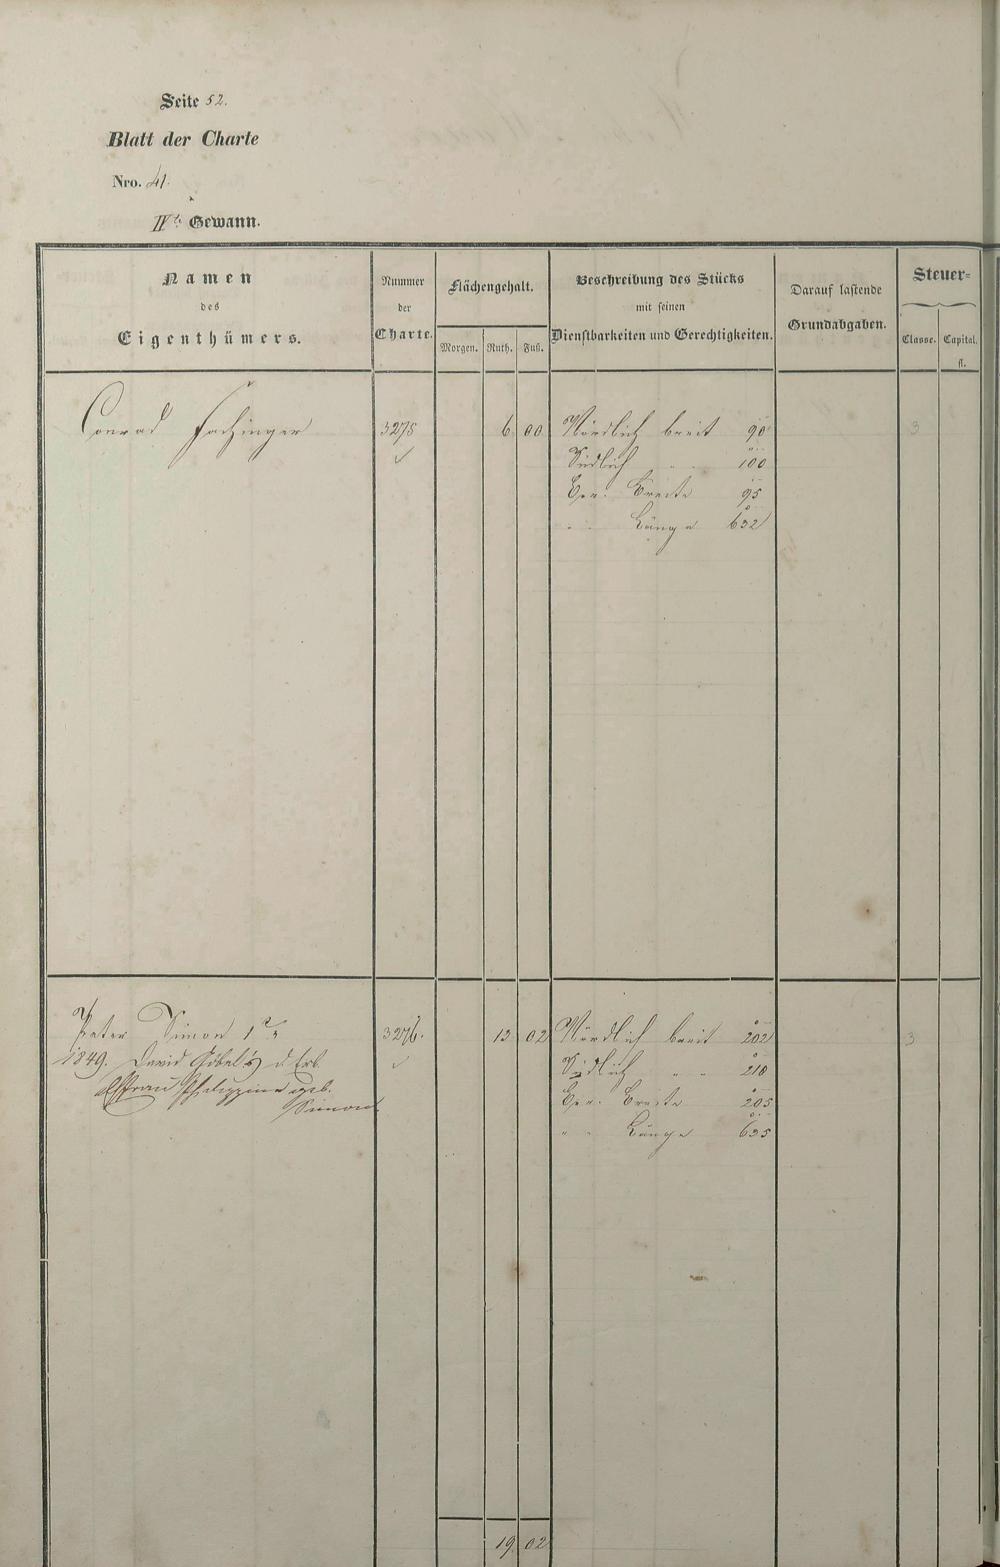 Seite 52.
Blatt der Charte
Nro. 41.
IVte Gewann.
Namen
des
Eigenthümers.
Nummer
der
Charte.
Flächengehalt.
Morgen. Ruth. Fuß.
Beschreibung des Stücks
mit seinen
Dienstbarkeiten und Gerechtigkeiten.
Darauf lastende
Grundabgaben.
Steuer=
Classe. Capital.
fl.
Conrad Fachinger 3275 6 00 Nördlich breit 90 3
Südlich " " 100
Breite 95
" " Länge 632
Peter Simon 1r 3276. 13 02 Nördlich breit 202 3
1849. David Göbel's d. Erb. Südlich " " 210
Ehefrau Philippine geb. Breite 205
Simon " " Länge 635
19 02